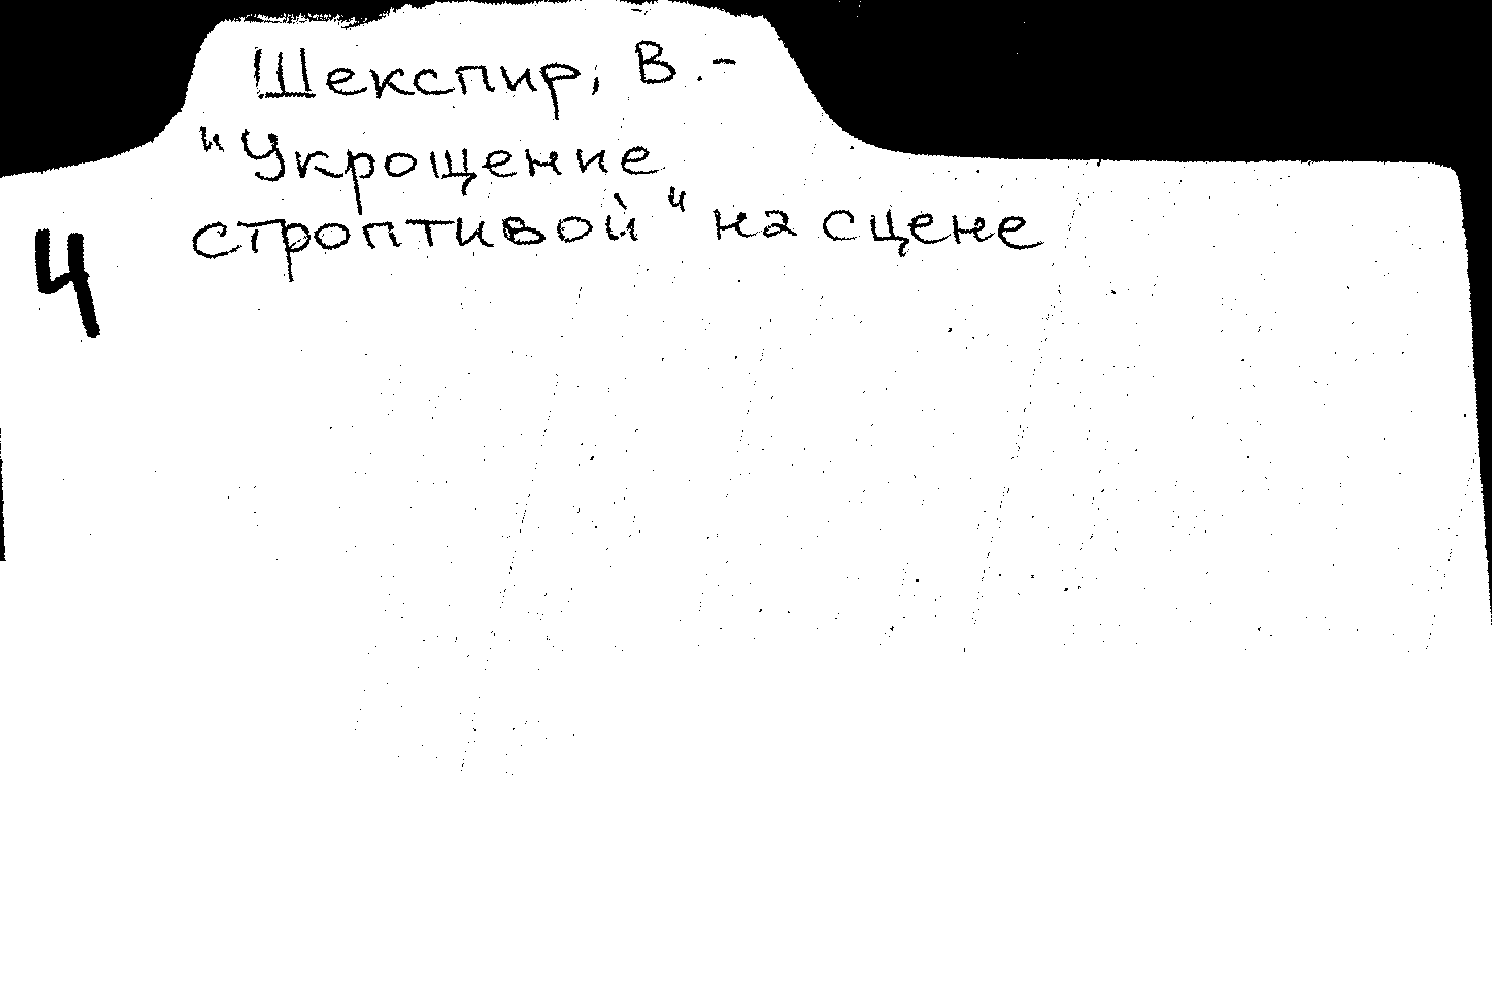 Шекспир, В.-
"Укрощение
строптивой" на сцене
4